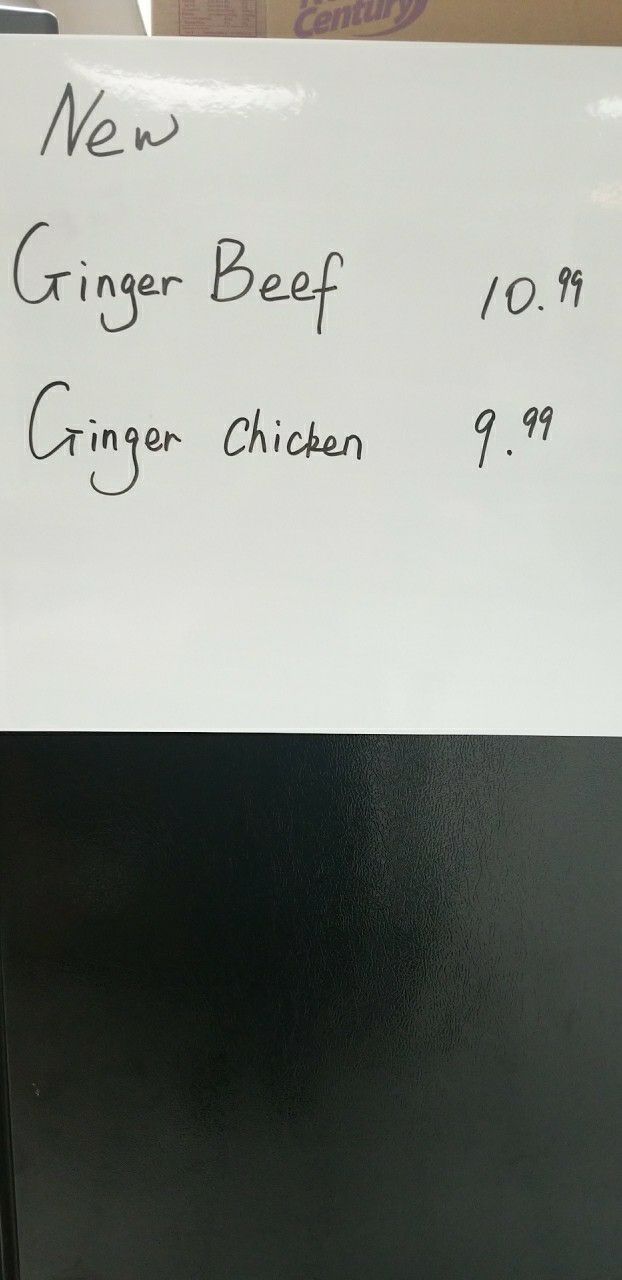 Century
New
Ginger Beef 10.99
Ginger Chicken 9.99